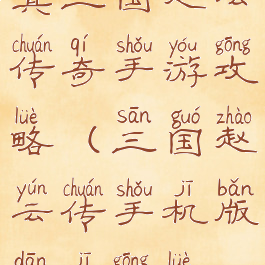 chuán qí shǒu yóu gōng
传奇手游攻
lüè sān guó zhào
略（三国赵
yún chuán shǒu jī bǎn
云传手机版
dān jī gōng lüè